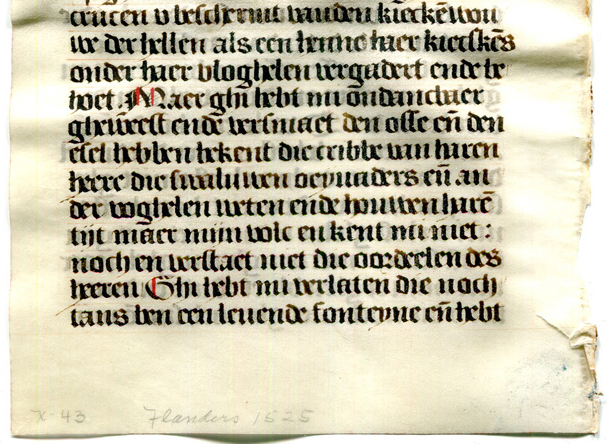 crucen v beschermt vanden kieckẽ wou
we der hellen als een henne haer kieckẽs
onder haer vloghelen vergadert ende be
hoet. Maer ghi hebt mi ondancbaer
gheweest ende versmaet den osse eñ den
esel hebben bekent die cribbe van haren
heere die swaluwen oeyuaders eñ an
der voghelen weten ende houwen harẽ
tijt maer mijn volc en kent mi niet:
noch en verstaet niet die oordeelen des
heeren Ghi hebt mi verlaten die noch
tans ben een leuende fonteyne eñ hebt
X-43 Flanders 1525